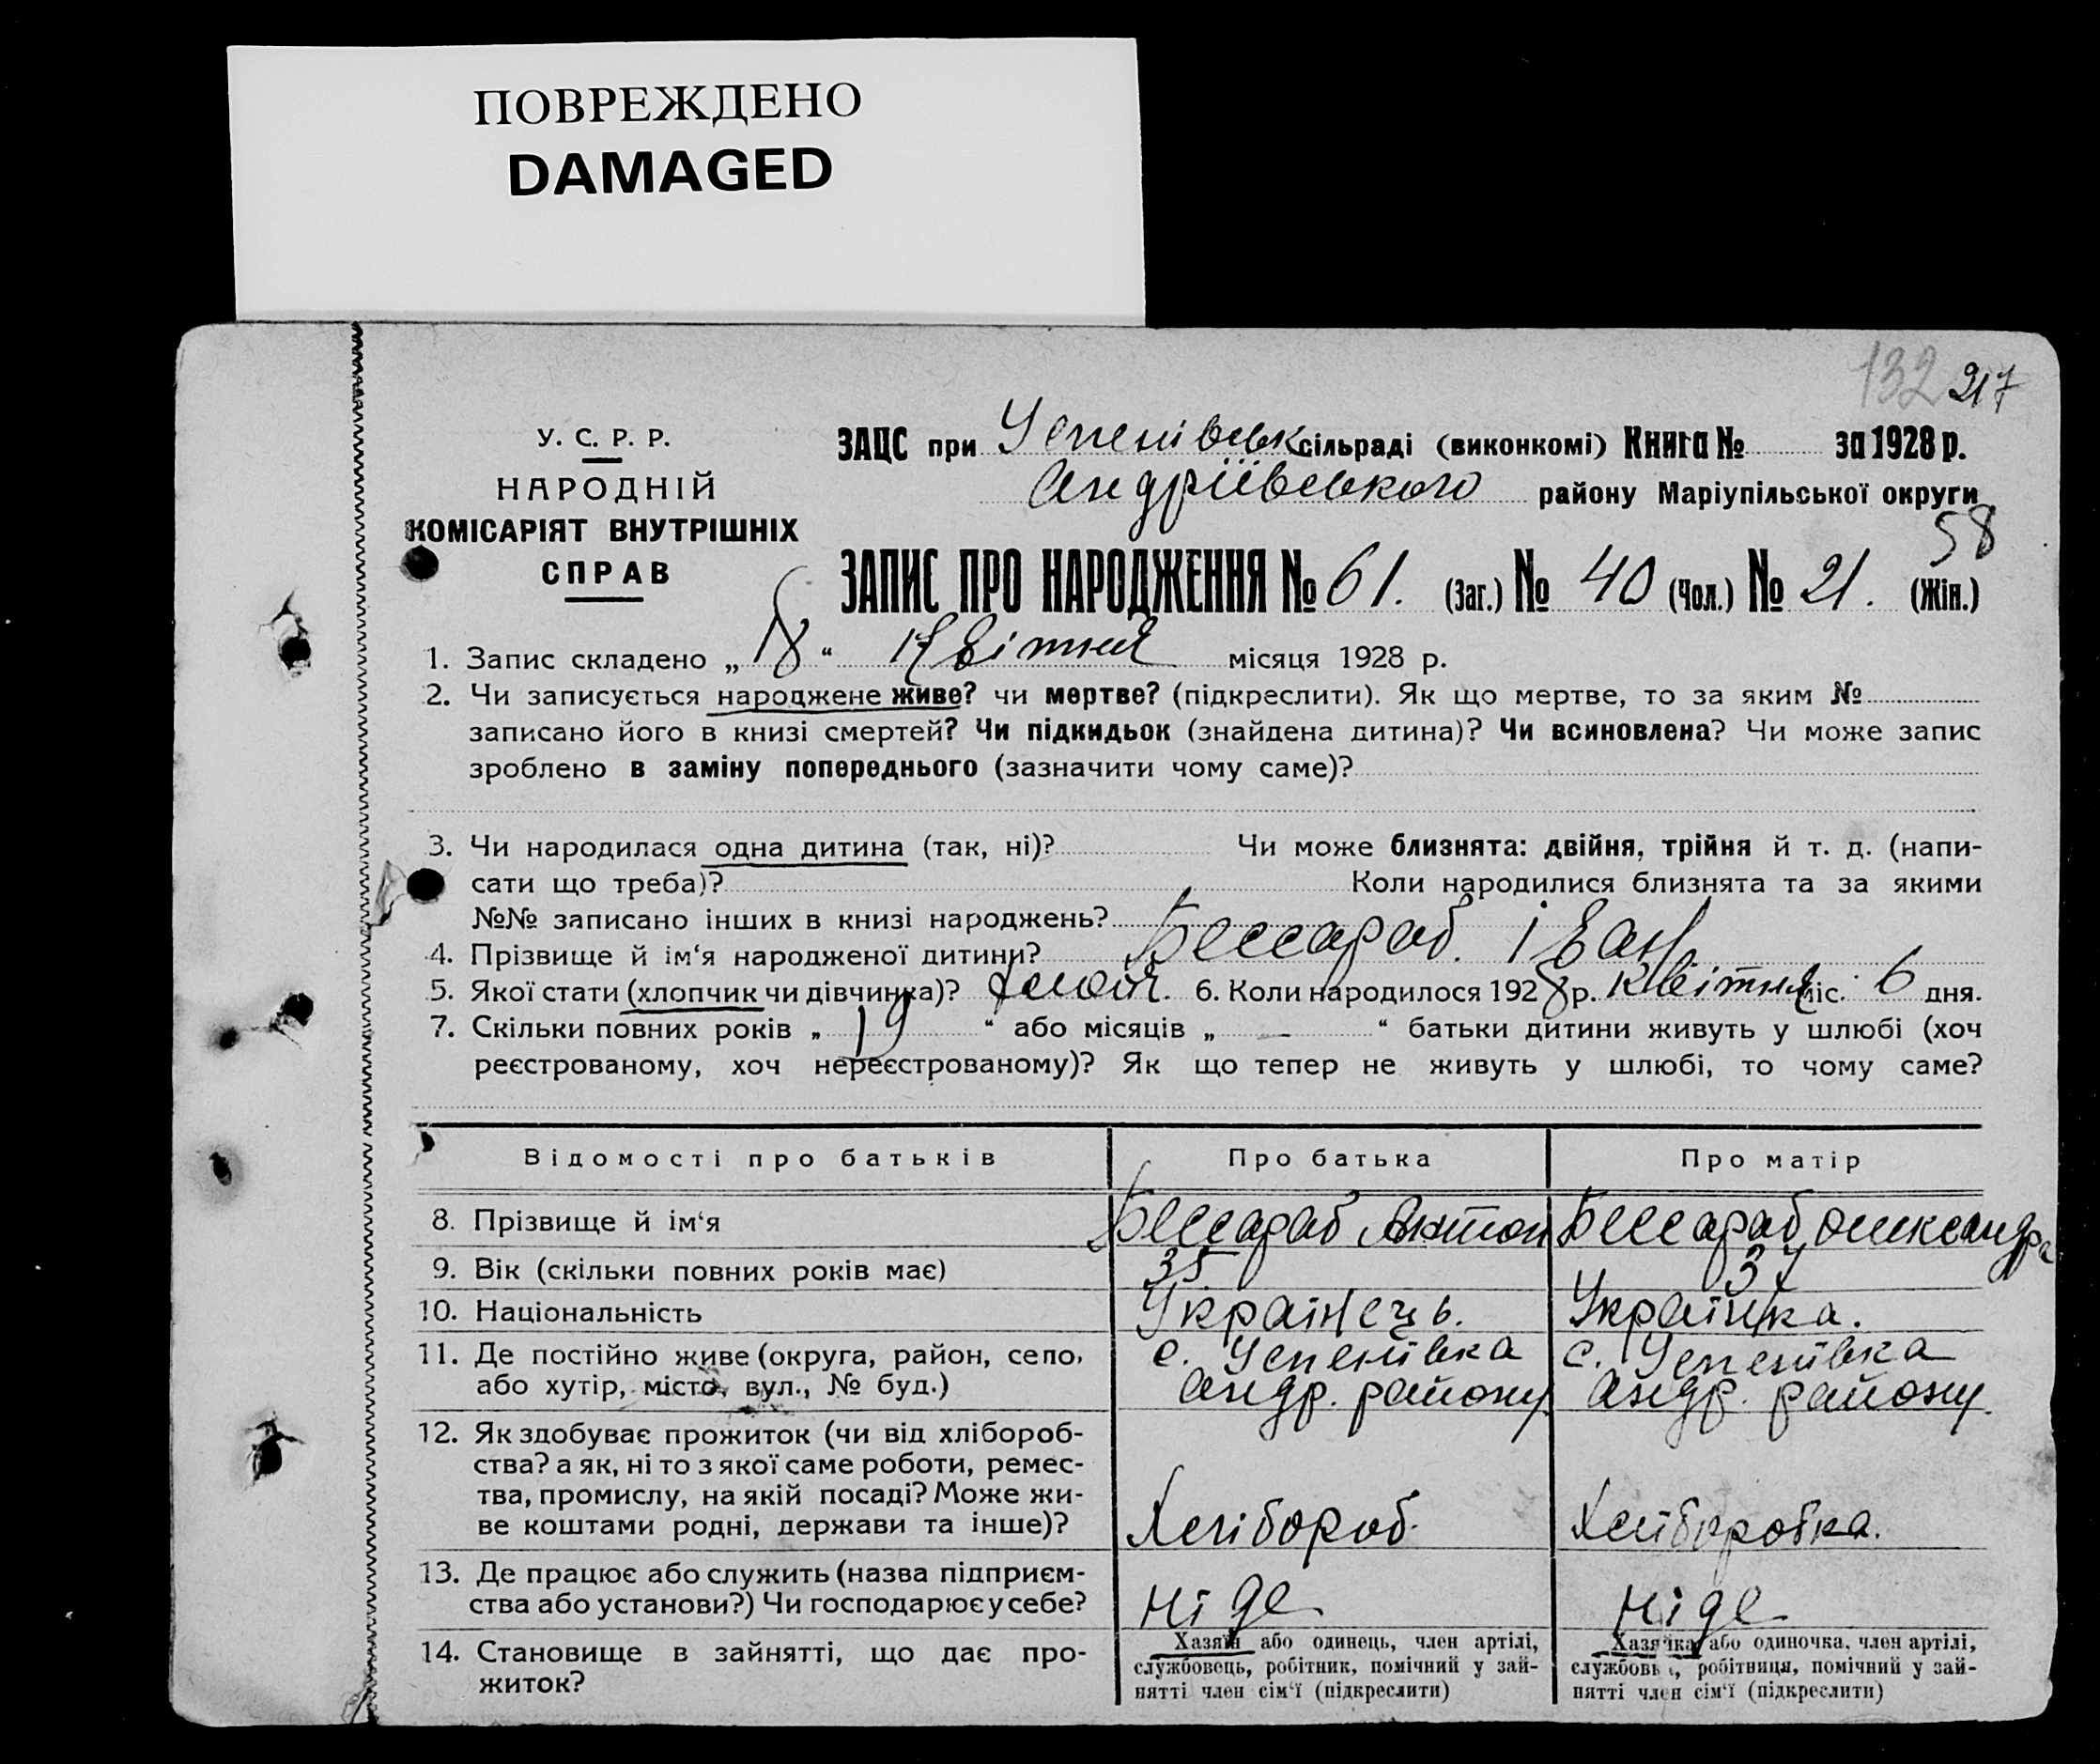 ПОВРЕЖДЕНО
DAMAGED
132 217
У. С. Р. Р.
НАРОДНІЙ
КОМІСАРІЯТ ВНУТРІШНІХ
СПРАВ
ЗАЦС при Успенівськ сільраді (виконкомі) Книга № за 1928 р.
Андріївського району Маріупільської округи
58
ЗАПИС ПРО НАРОДЖЕННЯ № 61. (Заг.) № 40 (Чол.) № 21. (Жін.)
1. Запис складено „ 18 “ Квітня місяця 1928 р.
2. Чи записується народжене живе? чи мертве? (підкреслити). Як що мертве, то за яким №
записано його в книзі смертей? Чи підкидьок (знайдена дитина)? Чи всиновлена? Чи може запис
зроблено в заміну попереднього (зазначити чому саме)?
3. Чи народилася одна дитина (так, ні)? Чи може близнята: двійня, трійня й т. д. (напи-
сати що треба)? Коли народилися близнята та за якими
№№ записано інших в книзі народжень?
4. Прізвище й ім‘я народженої дитини? Бессараб. Іван
5. Якої стати (хлопчик чи дівчинка)? 6. Коли народилося 1928 р. Квітня міс. 6 дня.
7. Скільки повних років „ 19 “ або місяців „ – “ батьки дитини живуть у шлюбі (хоч
реєстрованому, хоч нереєстрованому)? Як що тепер не живуть у шлюбі, то чому саме?
Відомості про батьків Про батька Про матір
8. Прізвище й ім‘я Бессараб Антон Бессараб Олександра
9. Вік (скільки повних років має) 35 37
10. Національність Українець. Українка.
11. Де постійно живе (округа, район, село, с. Успенівка с. Успенівка
або хутір, місто, вул., № буд.) Андр. району. Андр. району.
12. Як здобуває прожиток (чи від хлібороб-
ства? а як, ні то з якої саме роботи, ремес-
тва, промислу, на якій посаді? Може жи-
ве коштами родні, держави та інше)? Хлібороб. Хліборобка.
13. Де працює або служить (назва підприєм-
ства або установи?) Чи господарює у себе? Ніде Ніде
14. Становище в зайнятті, що дає про-
житок?
Хазяїн або одинець, член артілі,
службовець, робітник, помічний у зай-
нятті член сім‘ї (підкреслити)
Хазяйка або одиночка, член артілі,
службовь , робітниця, помічний у зай-
нятті член сім‘ї (підкреслити)